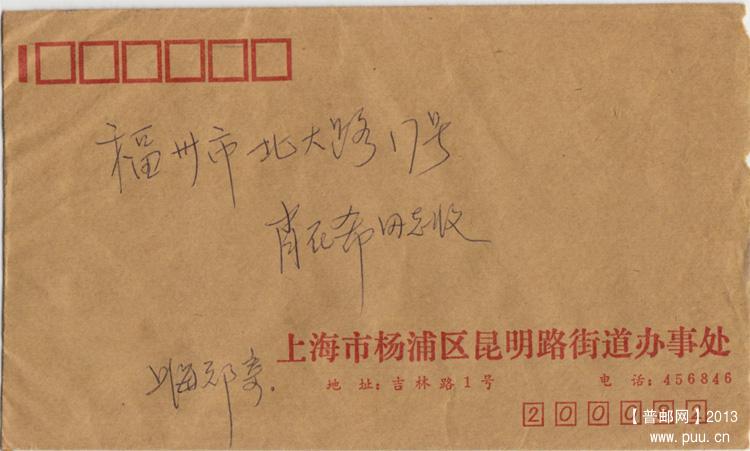 福州市北大路17号
肖石希同志收
上海市杨浦区昆明路街道办事处
地 址：吉林路1号 电 话：456846
上海邓寄.
2000
【普邮网】2013
www.puu.cn